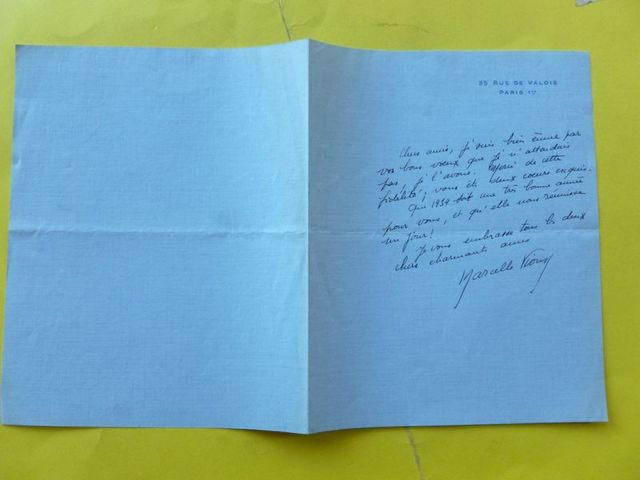 35 RUE DE VALOIS
PARIS 1er
Chers amis, je suis bien émue par
vos bons voeux que je n'attendais
pas, je l'avoue. de cette
fidélité, vous êtes deux coeurs exquis.
Que 1934 soit une très bonne année
pour vous, et qu'elle nous réunisse
un jour!
Je vous embrasse tous les deux
chers charmants amis
Marcelle